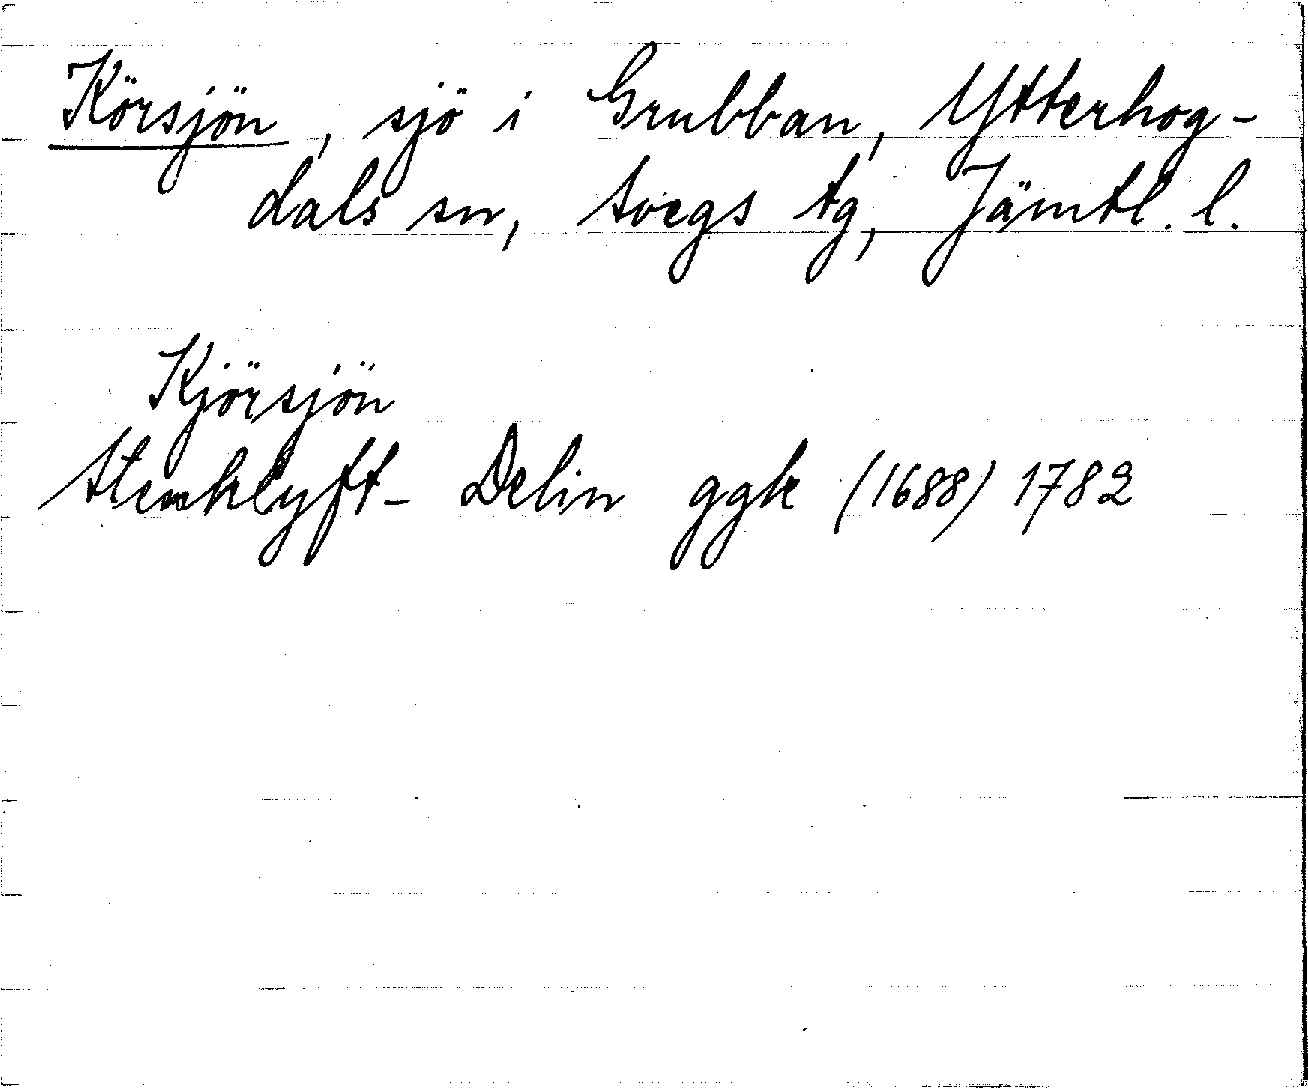 Körsjön, sjö i Grubban, Ytterhog-
dals sn, Svegs tg, Jämtl. l.
Kjörsjön
Stenklyft- Delin ggk (1688) 1782